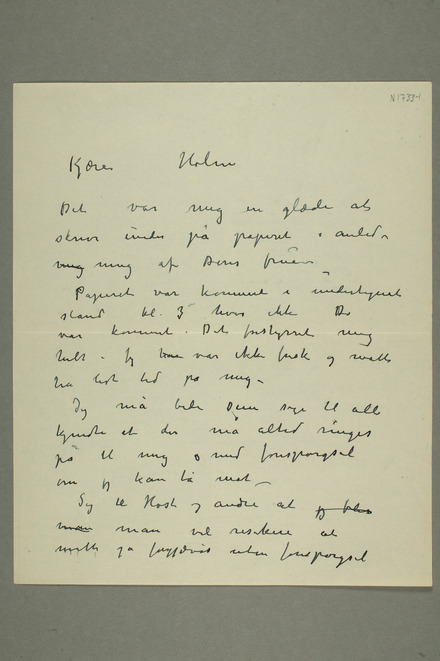 N 1733-1
Kjære Holm
Det var mig en glæde at
skrive under på papiret i anled-
ning af Deres
Papiret var kommet i
stand kl. 3 hvis ikke De
var kommet. Det forstyrret mig
helt. Jeg var ikke frisk og måtte
ha tid på mig –
Jeg må bede Dem sige til alle
kjendte at der må altid ringes
på til mig med forespørgsel
om jeg kan ta mot –
Sig til Høst og andre at jeg
man vil risikere at
måtte gå forgjæves uten forespørgsel